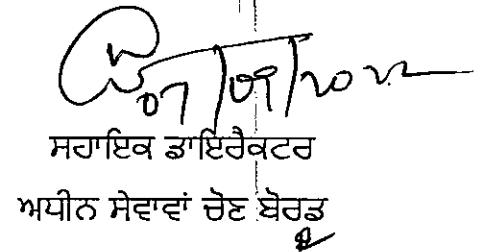 07/09/2022
ਸਹਾਇਕ ਡਾਇਰੈਕਟਰ
ਅਧੀਨ ਸੇਵਾਵਾਂ ਚੋਣ ਬੋਰਡ